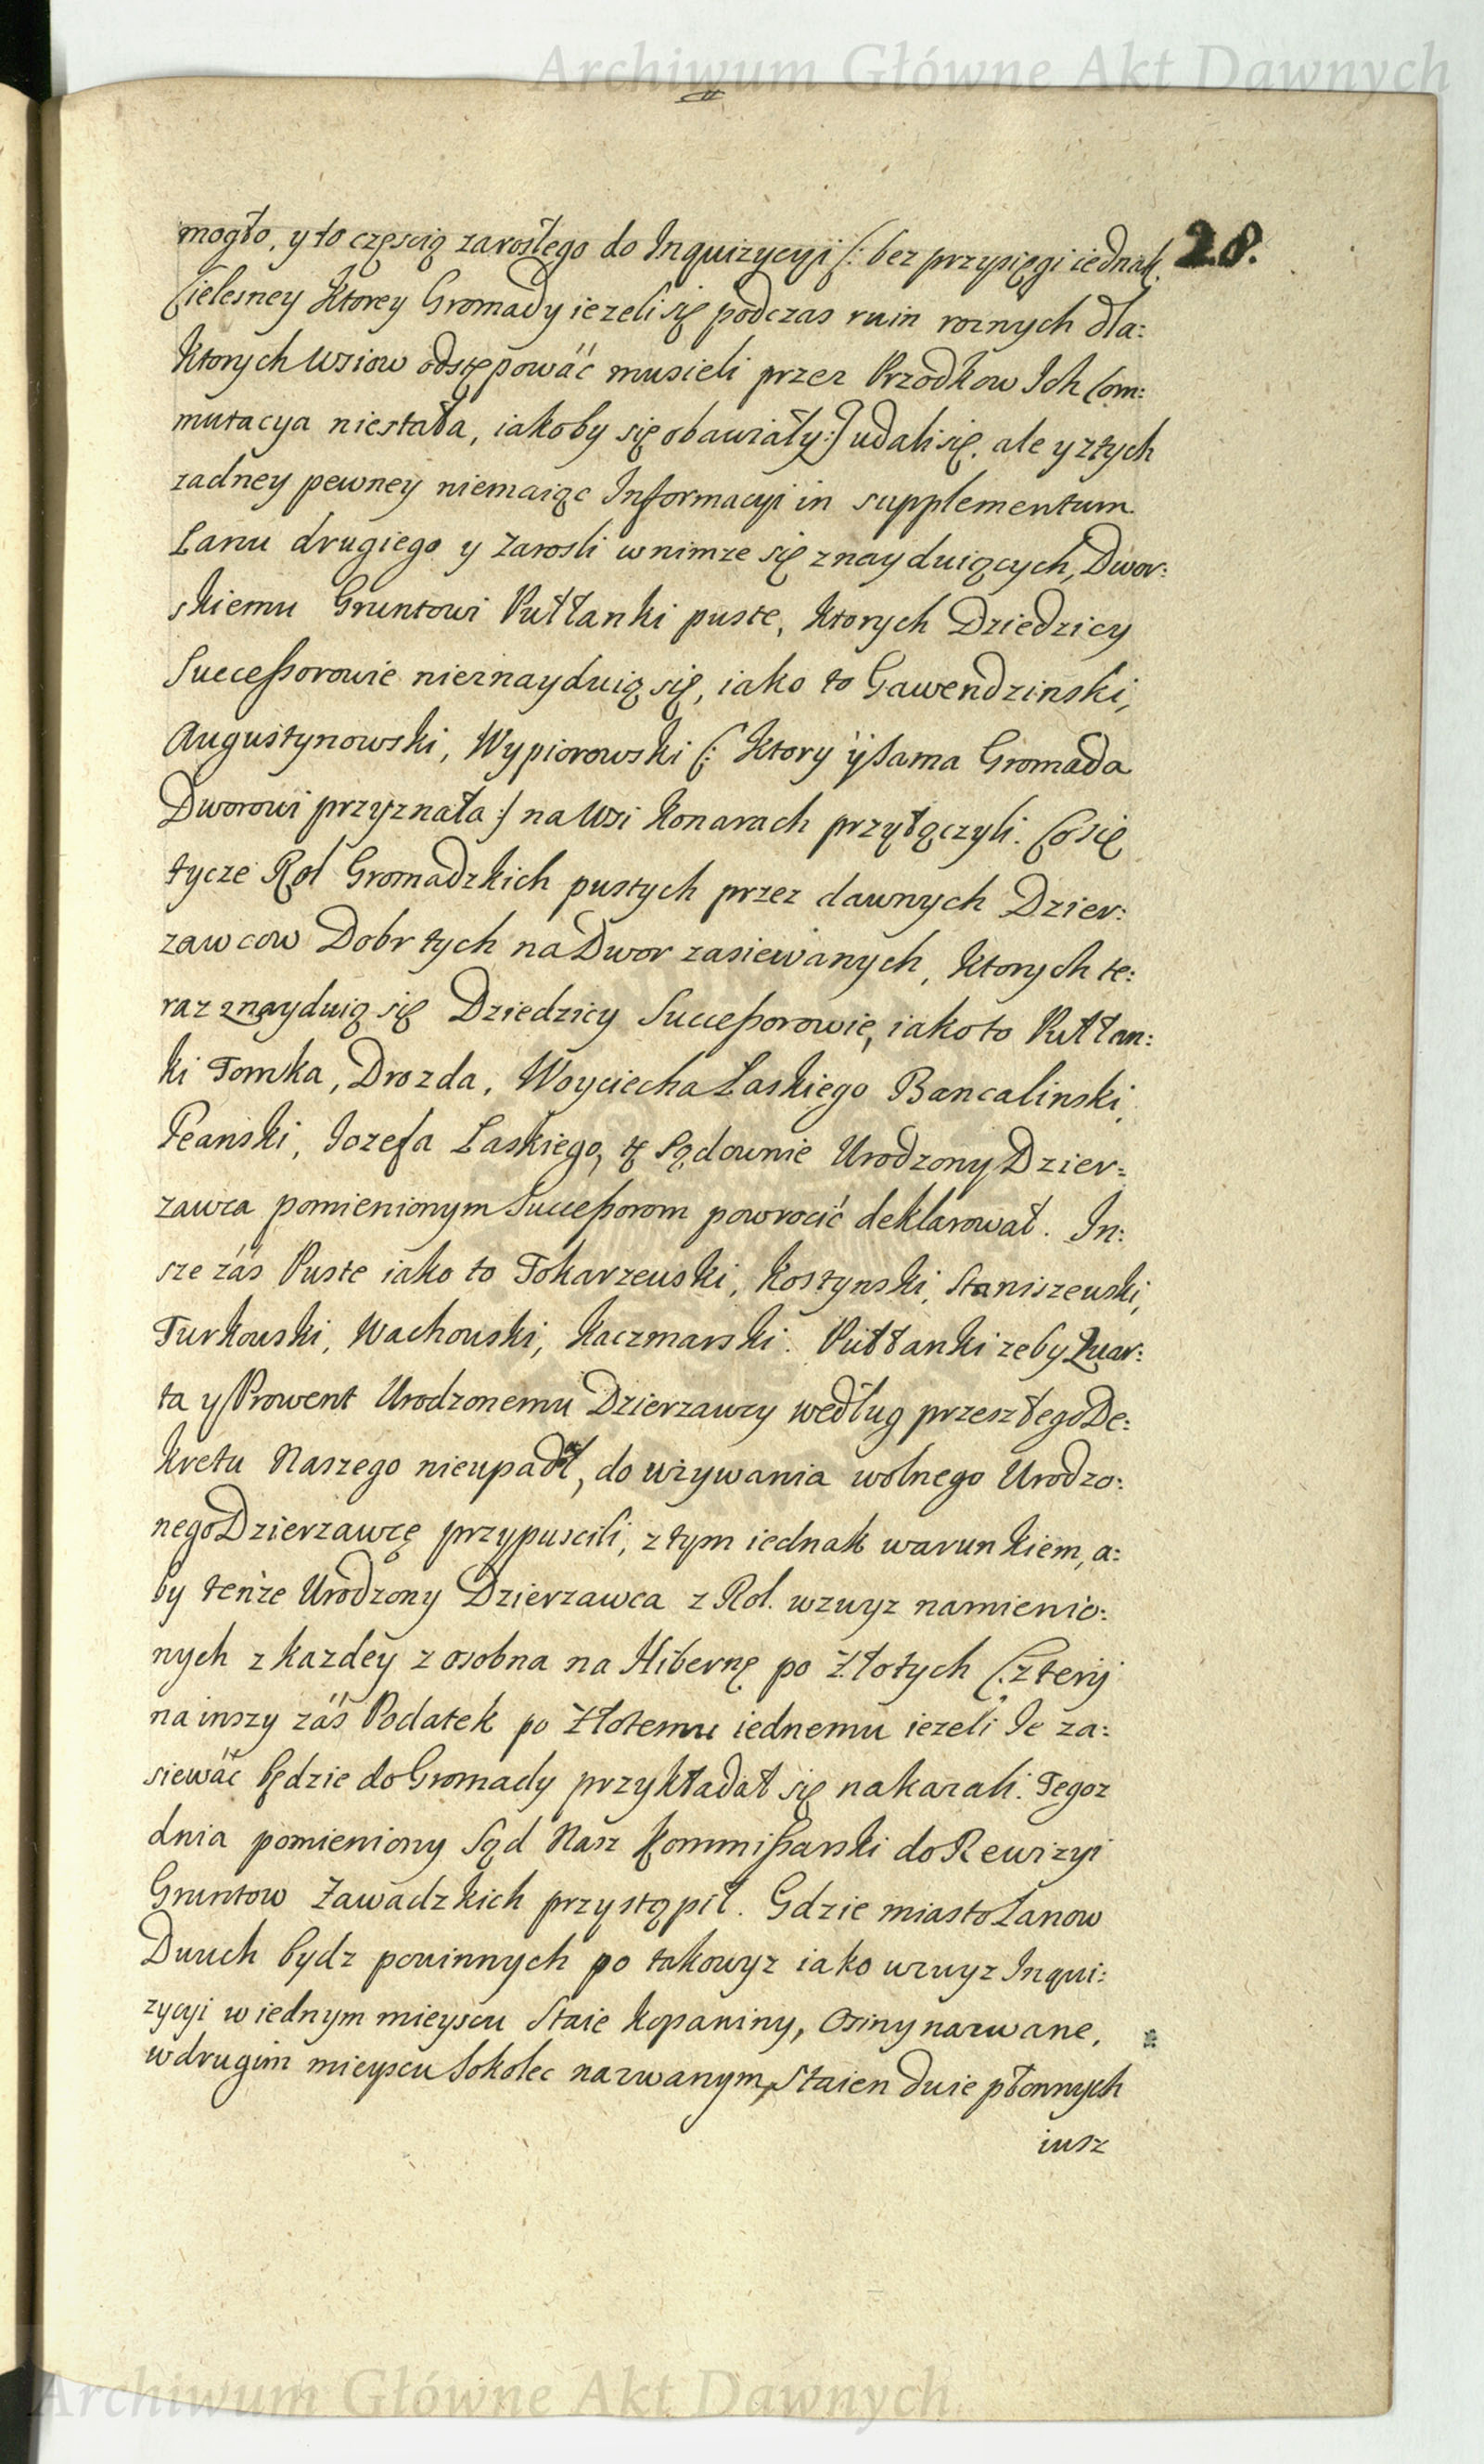 Archiwum Główne Akt Dawnych
28.
mogło, y to częscią zarosłego do Inquizycyi /: bez przysięgi iednak
Cielesney ktorey Gromady iezeli się podczas ruin roznych dla:
ktorych wsiow odstępowäć musieli przez Przodkow Ich Com:
mutacya niestała, iakoby się obawiały :/ udali się. ale y z tych
zadney pewney niemaiąc Informacyi in supplementum
Łanu drugiego y Zarosli w nimze się znayduiących, Dwor:
skiemu Gruntowi Pułłanki puste, ktorych Dziedzicy
Successorowie nieznayduią się, iako to Gawendzinski,
Augustynowski, Wypiorowski /: ktory ÿ sama Gromada
Dworowi przyznała :/ na Wsi Konarach przyłączyli. Co się
tycze Rol Gromadzkich pustych przez dawnych Dzier:
zawcow Dobr tych na Dwor zasiewanych, ktorych te:
raz znayduią się Dziedzicy Successorowie, iako to Pułłan:
ki Tomka, Drozda, Woyciecha Łaskiego Bancalinski,
Peanski, Iozefa Łaskiego, Sądownie Urodzony Dzier:
zawca pomienionym Successorom powrocić deklarował. In:
sze záś Puste iako to Tokarzewski, Kostynski, Staniszewski,
Turkowski, Wachowski, Kaczmarski. Pułłanki zeby Quar:
ta y Prowent Urodzonemu Dzierzawcy według przeszłego De:
kretu Naszego nieupadł, do uzywania wolnego Urodzo:
nego Dzierzawcę przypuscili, z tym iednak warunkiem, a:
by tenze Urodzony Dzierzawca z Rol. wzwyz namienio:
nych z kazdey z osobna na Hibernę po Złotych Cztery
na inszy záś Podatek po Złotemu iednemu iezeli Ie za:
siewáć będzie do Gromady przykładał się nakazali. Tegoz
dnia pomieniony Sąd Nasz Kommissarski do Rewizyi
Gruntow Zawadzkich przystąpił. Gdzie miasto Łanow
Dwuch bydz powinnych po takowyz iako wzwyz Inqui:
zycyi w iednym mieyscu Staie Kopaniny, Osiny nazwane,
w drugim mieyscu Sokolec nazwanym, Staien dwie płonnych
iusz
Archiwum Główne Akt Dawnych